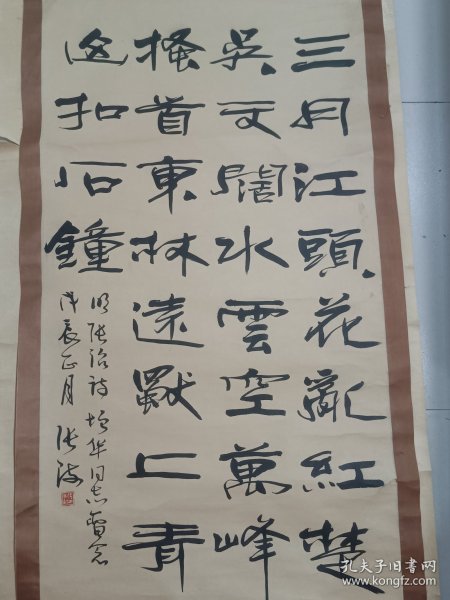 三月江頭花亂紅楚
吳天闊水雲空萬峰
搔首東林遠上青
扣石鐘
明张治詩 华同志留念
戊辰正月 张海
孔夫子旧书网
www.kongfz.com